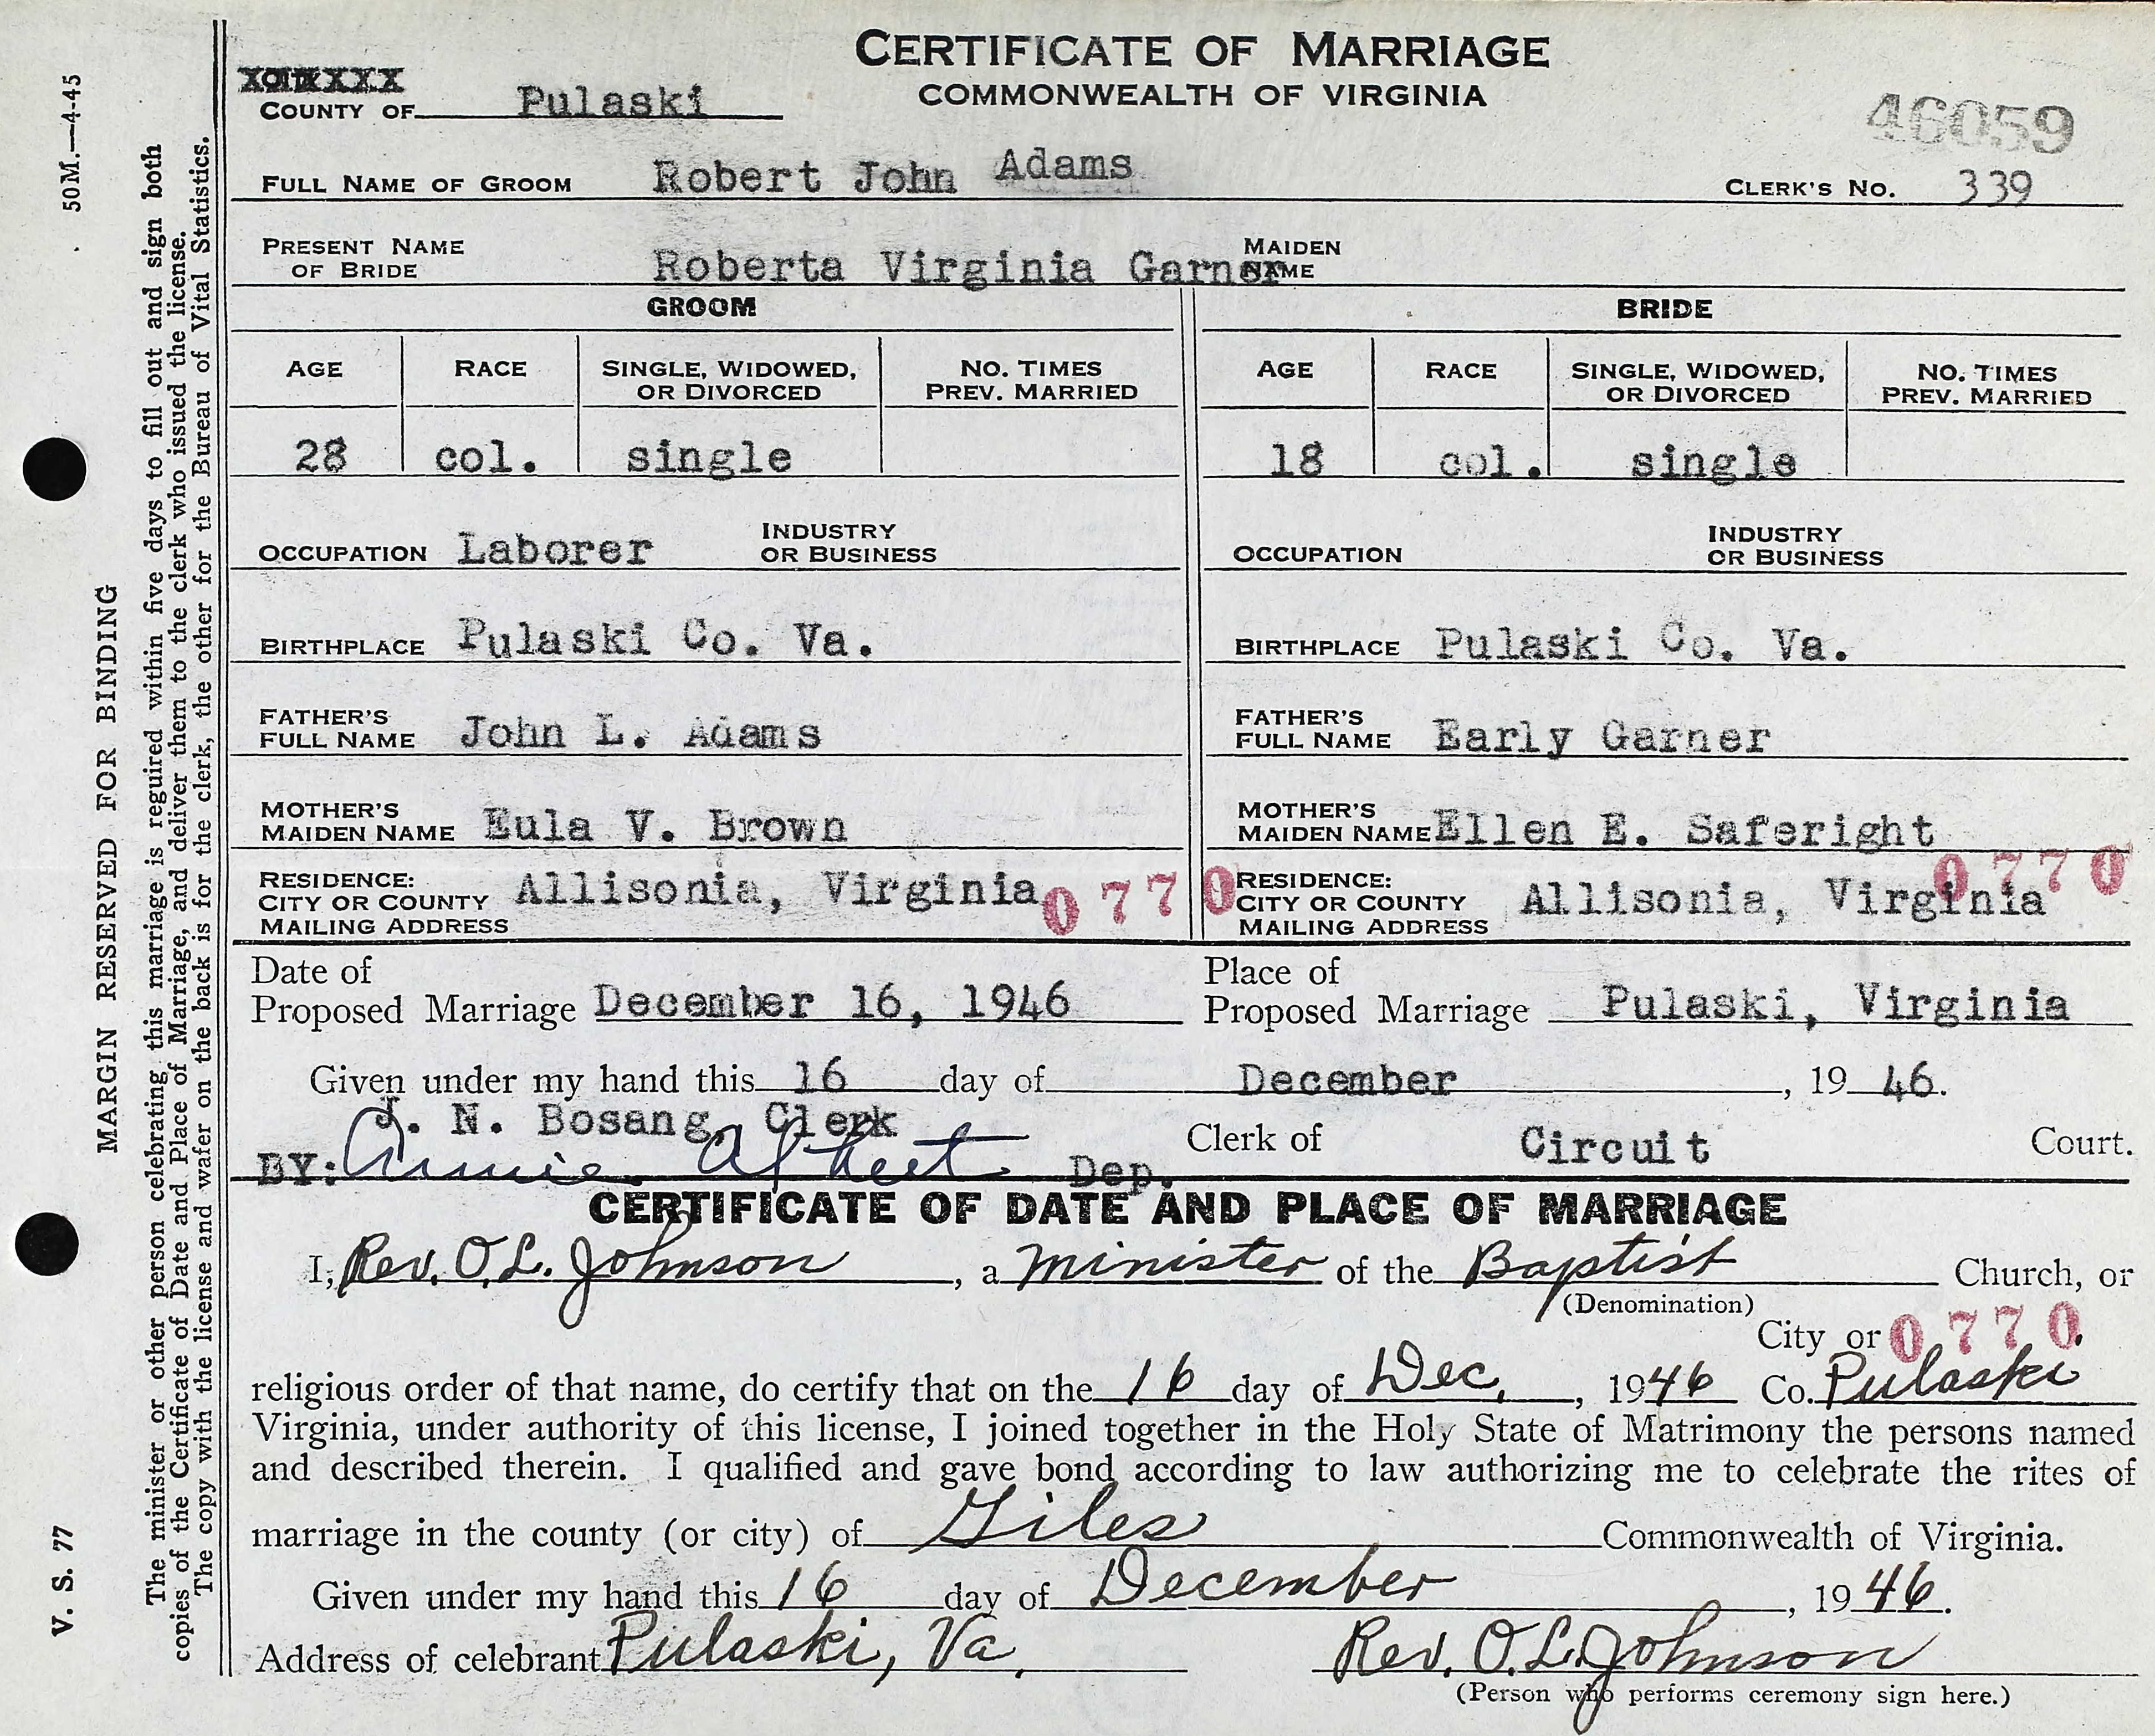 CERTIFICATE OF MARRIAGE
COMMONWEALTH OF VIRGINIA
COUNTY OF Pulaski
46059
FULL NAME OF GROOM Robert John Adams CLERK'S NO. 339
PRESENT NAME OF BRIDE Roberta Virginia Garner MAIDEN NAME
GROOM BRIDE
AGE RACE SINGLE, WIDOWED, OR DIVORCED NO. TIMES PREV. MARRIED AGE RACE SINGLE, WIDOWED, OR DIVORCED NO. TIMES PREV. MARRIED
28 col. single 18 col. single
OCCUPATION Laborer INDUSTRY OR BUSINESS OCCUPATION INDUSTRY OR BUSINESS
BIRTHPLACE Pulaski Co. Va. BIRTHPLACE Pulaski Co. Va.
FATHER'S FULL NAME John L. Adams FATHER'S FULL NAME Early Garner
MOTHER'S MAIDEN NAME Eula V. Brown MOTHER'S MAIDEN NAME Ellen E. Saferight
RESIDENCE: CITY OR COUNTY MAILING ADDRESS Allisonia, Virginia 0770 RESIDENCE: CITY OR COUNTY MAILING ADDRESS Allisonia, Virginia 0770
Date of Proposed Marriage December 16, 1946 Place of Proposed Marriage Pulaski, Virginia
Given under my hand this 16 day of December, 1946.
J. N. Bosang, Clerk
BY: Dep. Clerk of Circuit Court.
CERTIFICATE OF DATE AND PLACE OF MARRIAGE
I, Rev. O.L. Johnson, a minister of the Baptist Church, or
(Denomination)
City or 0770
religious order of that name, do certify that on the 16 day of Dec., 1946 Co. Pulaski
Virginia, under authority of this license, I joined together in the Holy State of Matrimony the persons named
and described therein. I qualified and gave bond according to law authorizing me to celebrate the rites of
marriage in the county (or city) of Giles Commonwealth of Virginia.
Given under my hand this 16 day of December, 1946.
Address of celebrant Pulaski, Va. Rev. O.L. Johnson
(Person who performs ceremony sign here.)
50M.—4-45
MARGIN RESERVED FOR BINDING
V. S. 77
The minister or other person celebrating this marriage is required within five days to fill out and sign both
copies of the Certificate of Date and Place of Marriage, and deliver them to the clerk who issued the license.
The copy with the license and wafer on the back is for the clerk, the other for the Bureau of Vital Statistics.